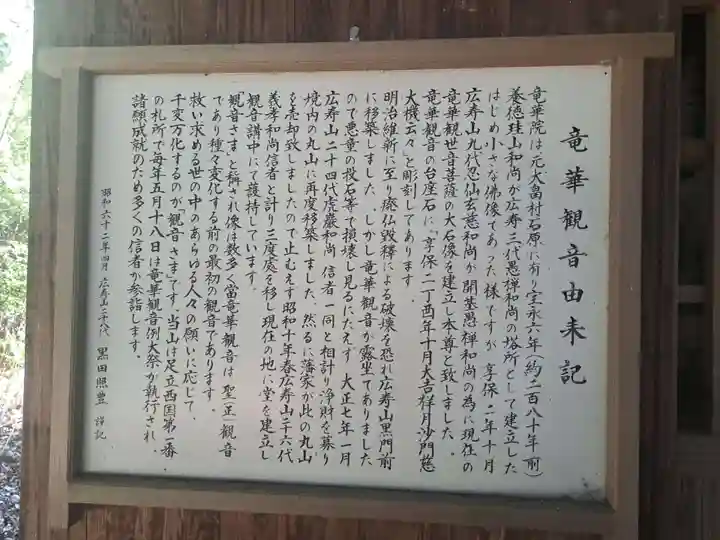 竜華観音由来記
竜華院は元大畠村石原に有り宝永六年(約二百八十年前)
養徳珪山和尚が広寿三代悪禅和尚の塔所として建立した
はじめ小さな佛像であった様ですが享保二年十月
広寿山九代忍仙玄慈和尚が開基悪禅和尚の為に現在の
竜華観世音菩薩の大石像を建立し本尊と致しました。
竜華観音の台座石に「享保二丁酉年十月大吉祥月沙門慈
大機云々と彫刻してあります。
明治維新に至り廃仏毀釋による破壊を恐れ広寿山黒門前
に移築しました。しかし竜華観音が露坐でありました
ので悪童の投石等で損壊し見るにたえず大正七年一月
広寿山二十四代虎巖和尚 信者一同と相計り浄財を募り
境内の丸山に再度移築しました、然るに藩家が此の丸山
を売却致しましたので止むえず昭和十年春広寿山二十六代
義孝和尚信者と計り三度處を移し現在の地に堂を建立し
観音講中にて護持しています。
「観音さま」と稱され像は数多く當竜華観音は聖(正)観音
であり種々変化する前の最初の観音であります。
救い求める世の中のあらゆる人々の願いに応じて、
千変万化するのが「観音さま」です。当山は足立西国第一番
の札所で毎年五月十八日は竜華観音例大祭が執行され、
諸願成就のため多くの信者が参詣します。
昭和六十二年四月 広寿山二十八代 黒田照豊 謹記